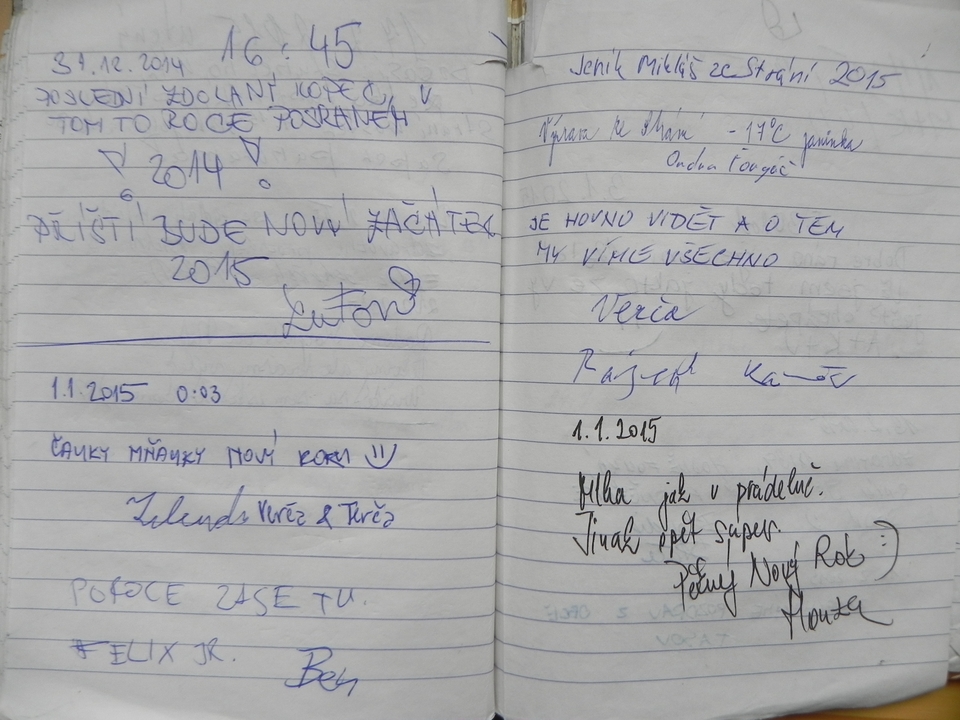 16:45
31.12.2014
POSLEDNÍ ZDOLANÍ KOPEC, V
TOMTO ROCE POSRANEM
2014
PŘÍŠTÍ BUDE NOVÝ ZAČÁTEK
2015
1.1.2015 0:03
ČAUKY MŇAUKY NOVÍ ROKU
Verča & Terča
POROCE ZASE TU.
FELIX JR.
Ben
Jeník Mikláš ze Strání 2015
Výprava ke -17°C
Ondra
JE HOVNO VIDĚT A O TEM
MY VÍME VŠECHNO
Verča
1.1.2015
Mlha jak v prádelně.
Jinak opět super.
Pěkný Nový Rok :)
Honza